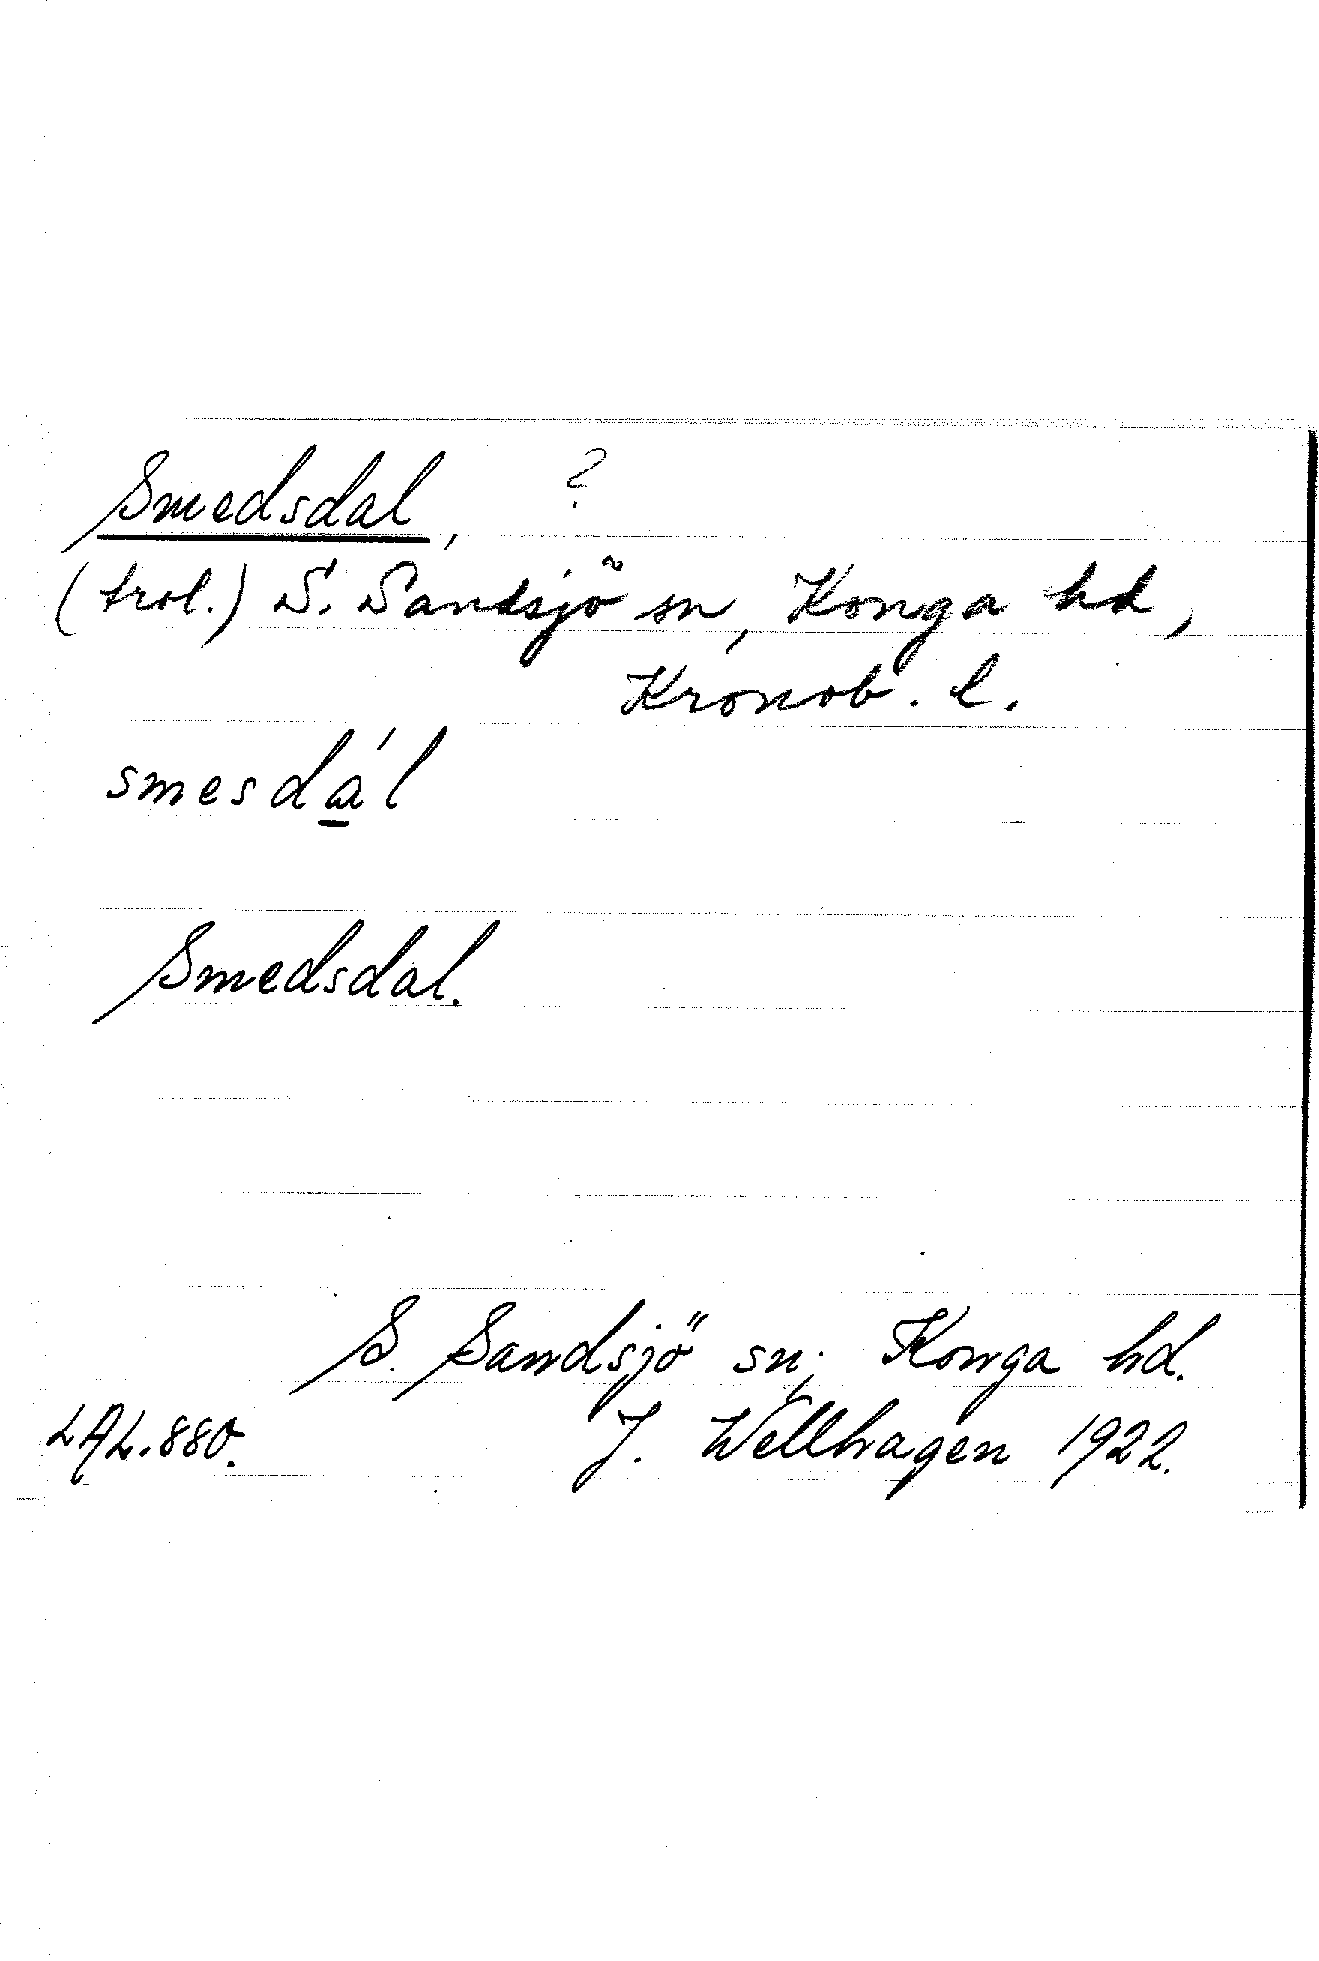 Smedsdal, ?
(trol.) S. Sandsjö sn, Konga hd,
Kronob. l.
smesdá̲l
Smedsdal.
S. Sandsjö sn, Konga hd.
LAL.880. J. Wellhagen 1922.